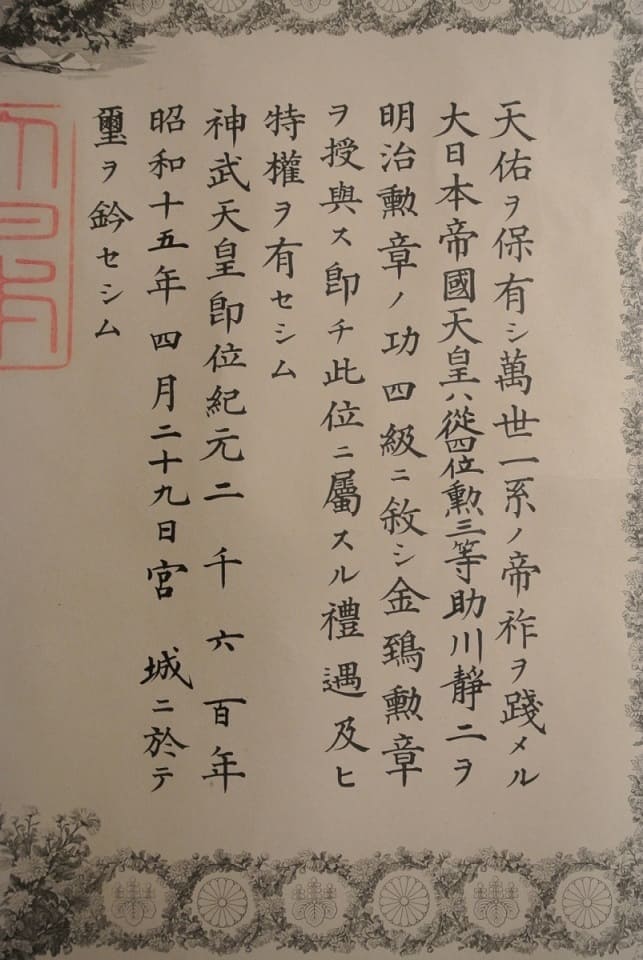 天佑ヲ保有シ萬世一系ノ帝祚ヲ踐メル
大日本帝國天皇ハ從四位勲三等助川靜二ヲ
明治勲章ノ功四級ニ敘シ金鵄勲章
ヲ授與ス卽チ此位ニ屬スル禮遇及ヒ
特權ヲ有セシム
神武天皇卽位紀元二千六百年
昭和十五年四月二十九日宮 城ニ於テ
璽ヲ鈐セシム